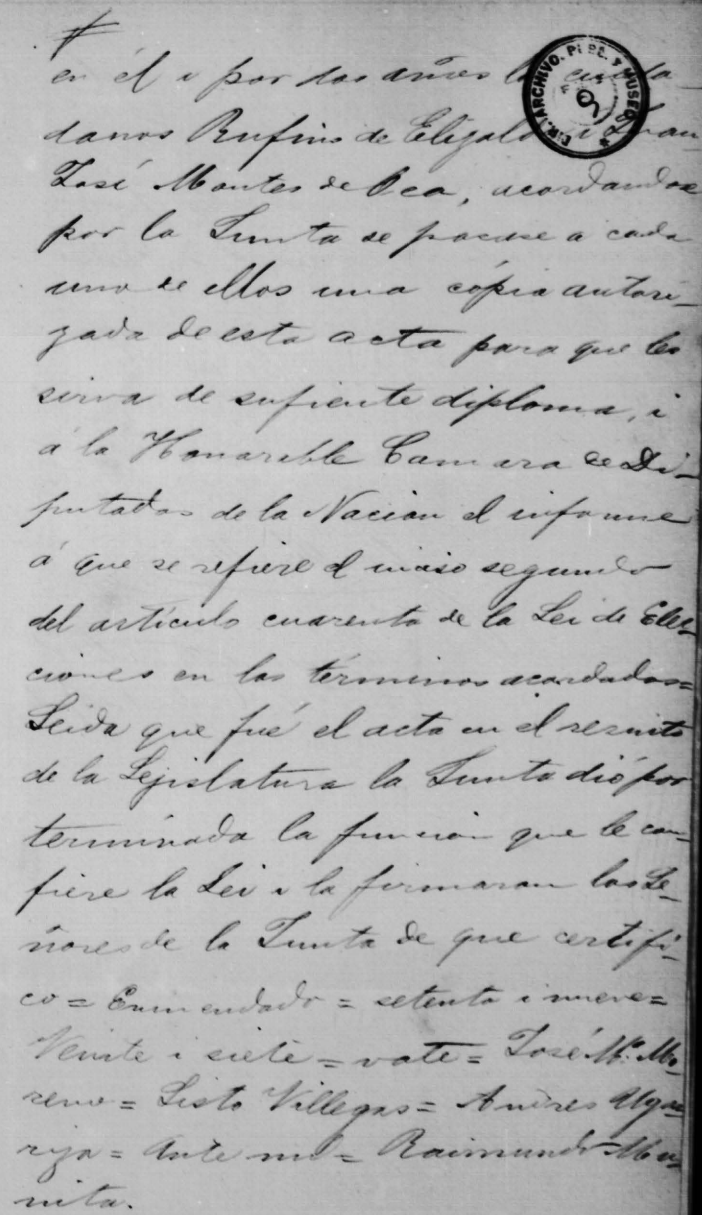 en él i por dos años los ciuda-
danos Rufino de Elizalde i Juan
José Montes de Oca, acordandose
por la Junta se pasase a cada
uno de ellos una cópia autori-
zada de esta acta para que les
sirva de sufiente diploma, i
á la Honorable Camara de Di-
putados de la Nacion el informe
á que se refiere el inciso segundo
del artículo cuarenta de la Lei de Elec-
ciones en los términos acordados=
Leida que fué el acta en el recinto
de la Lejislatura la Junta dió por
terminada la funcion que le con-
fiere la Lei i la firmaron los Se-
ñores de la Junta de que certifi-
co = Enmendado = setenta i nueve =
Veinte i siete = vate = José Mª Mo-
reno = Sisto Villegas = Andres Uga-
rriza = Ante mi = Raimundo
nita.
DIR. ARCHIVO. PUBL. Y MUSEO